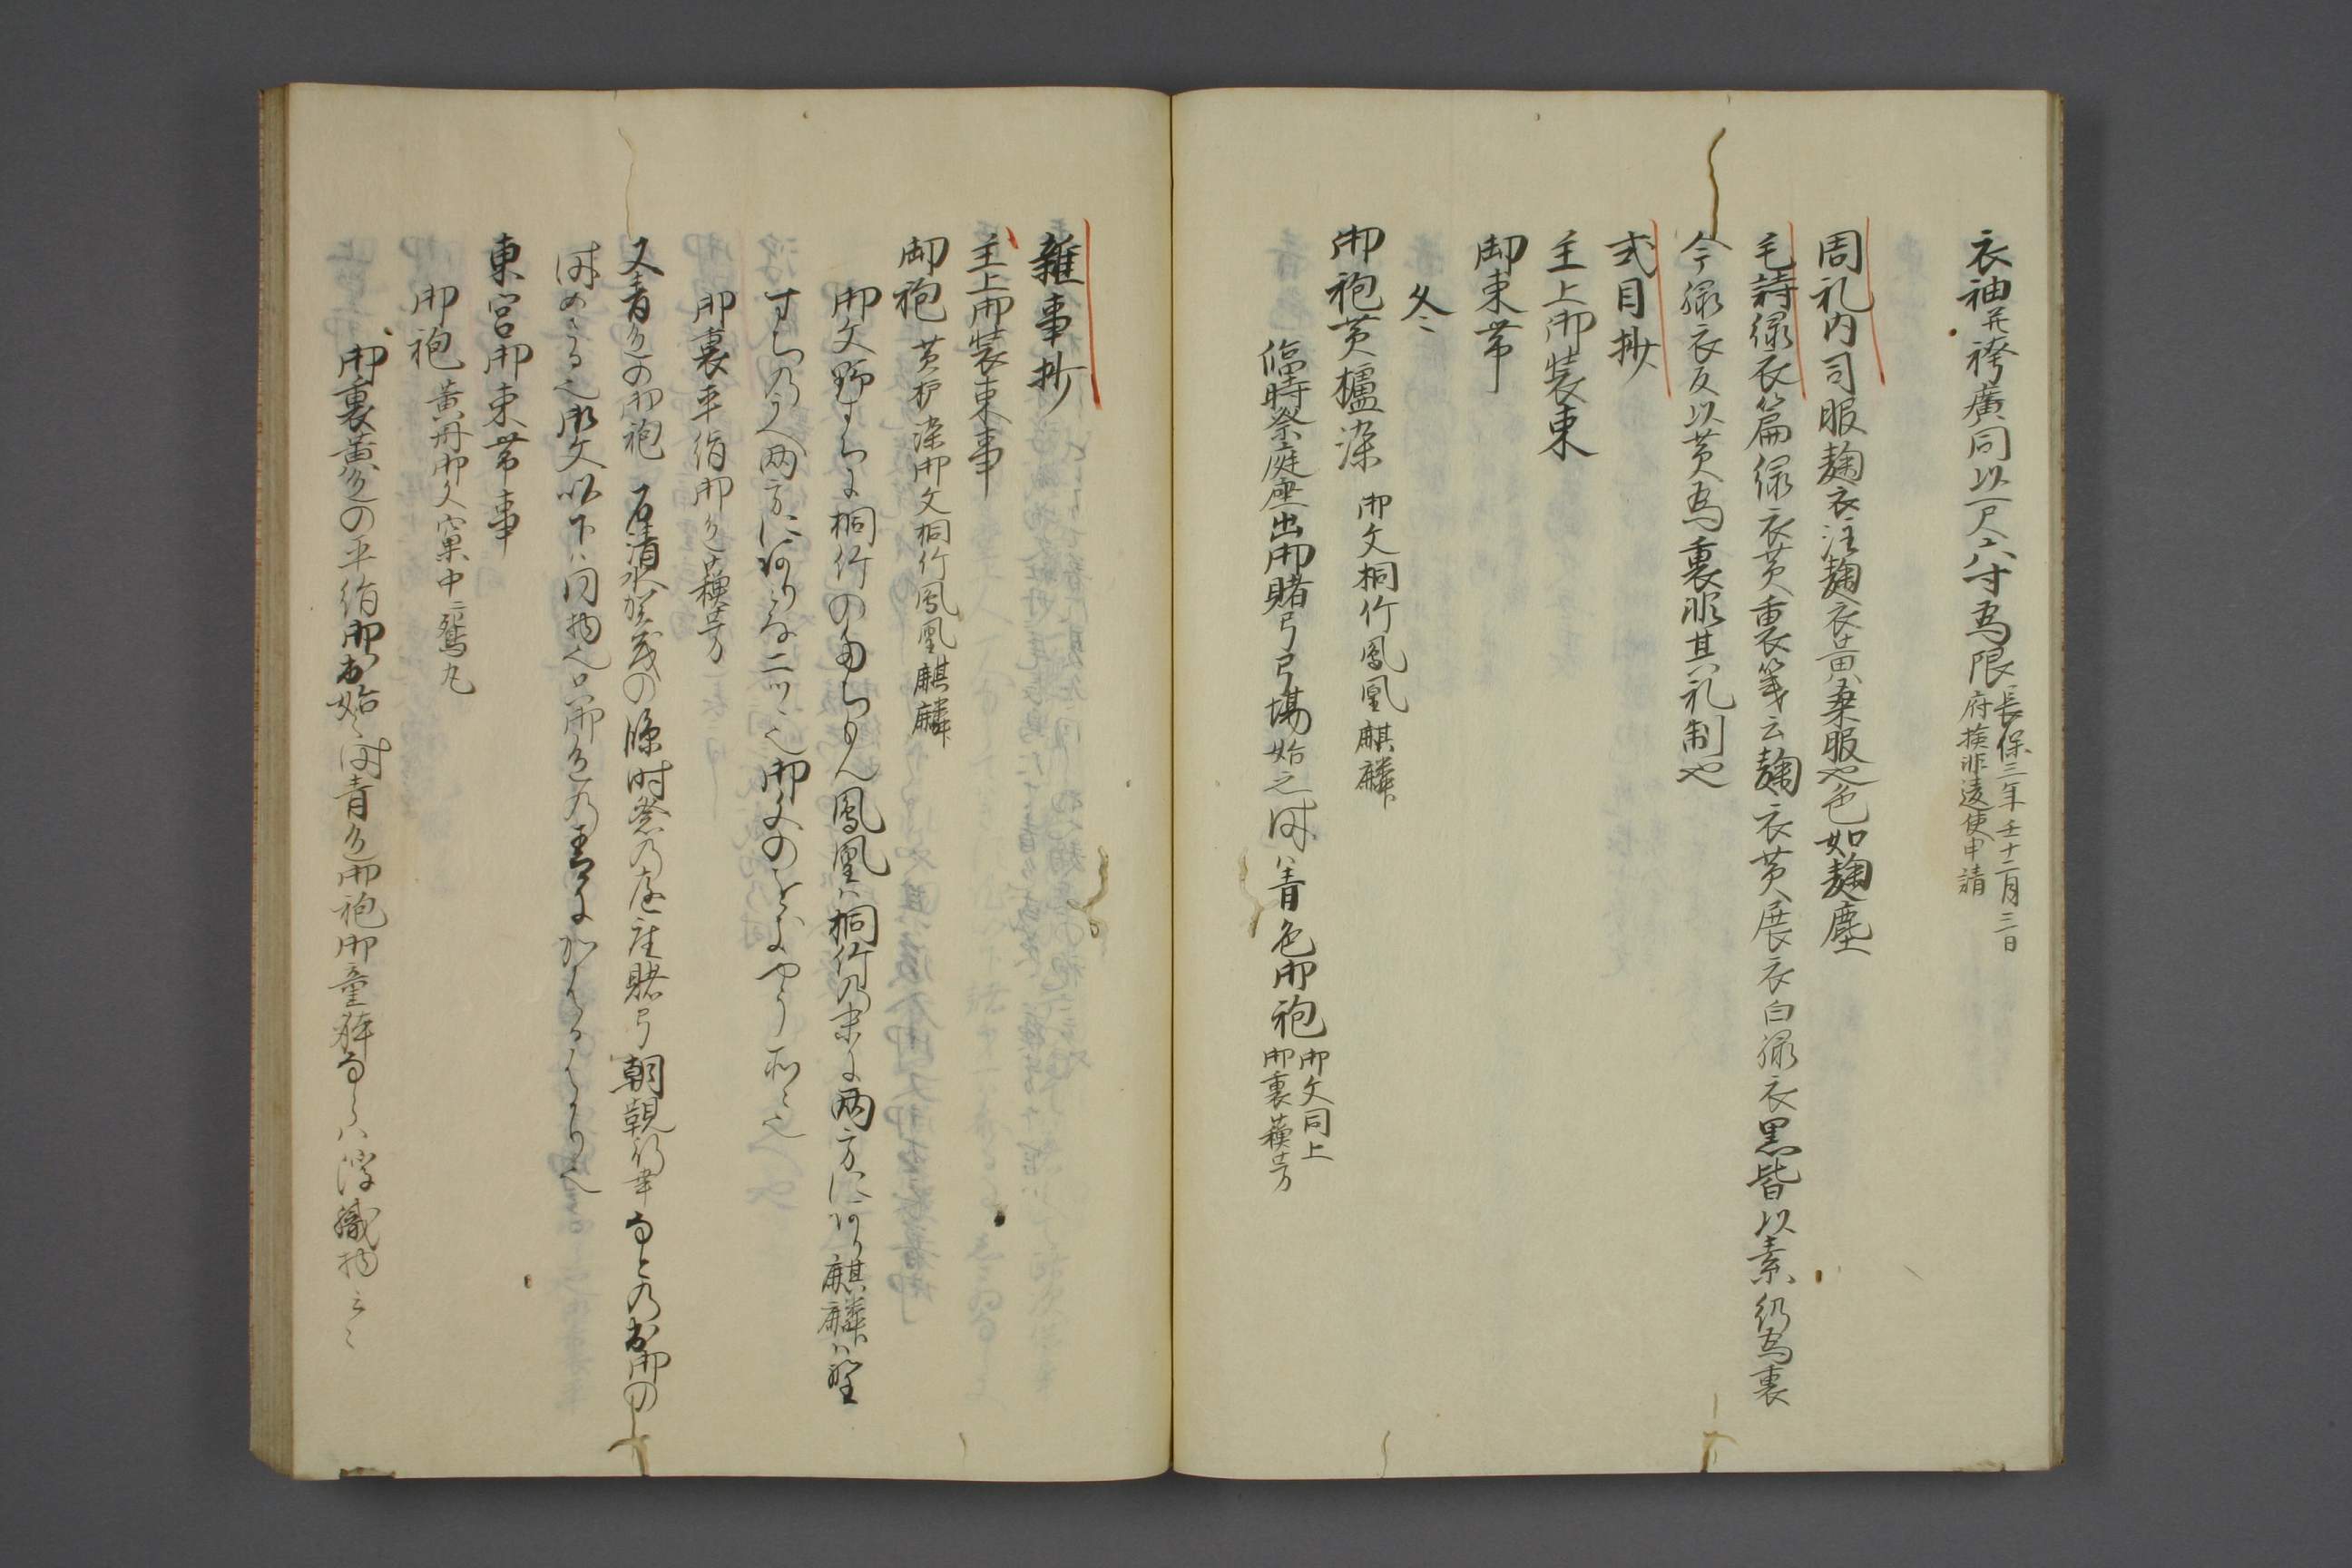 衣袖并袴廣同以一尺八寸為限長保三年壬十二月三日
府検非違使申請
周礼内司服麹衣注麹衣黄桑服也色如麹塵
毛詩緑衣篇緑衣黄裏箋云麹衣黄展衣白緑衣黒皆以素紗為裏
今緑衣反以黄為裏非其礼制也
式目抄
主上御装束
御束帯
冬
御袍黄櫨染 御文桐竹鳳凰麒麟
臨時祭庭座出御賭弓弓場始之時ハ青色御袍御文同上
御裏蘇芳
雑事抄
主上御装束事
御袍 黄栌染御文桐竹鳳凰麒麟
御文野すちに桐竹のあり鳳凰ハ桐竹乃末に両方にあり麒麟ハ野
すちの両方にあり二ツゝ也御文の
御裏平絹御色蘇芳
又青色の御袍 石清水賀茂の臨時祭の庭座賭弓朝覲行幸なとの出御の
時めさる也御文以下ハ同物也只御色の青にかはるはかり也
東宮御束帯事
御袍 黄丹御文窠中ニ鴛丸
御裏黄色の平絹御出始ゝ時青色御袍御童躰ならハ浮織物云々